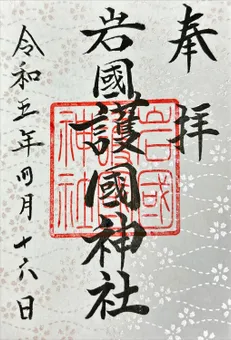 奉拝
岩國護國神社
岩國
護國
神社
令和五年四月十六日